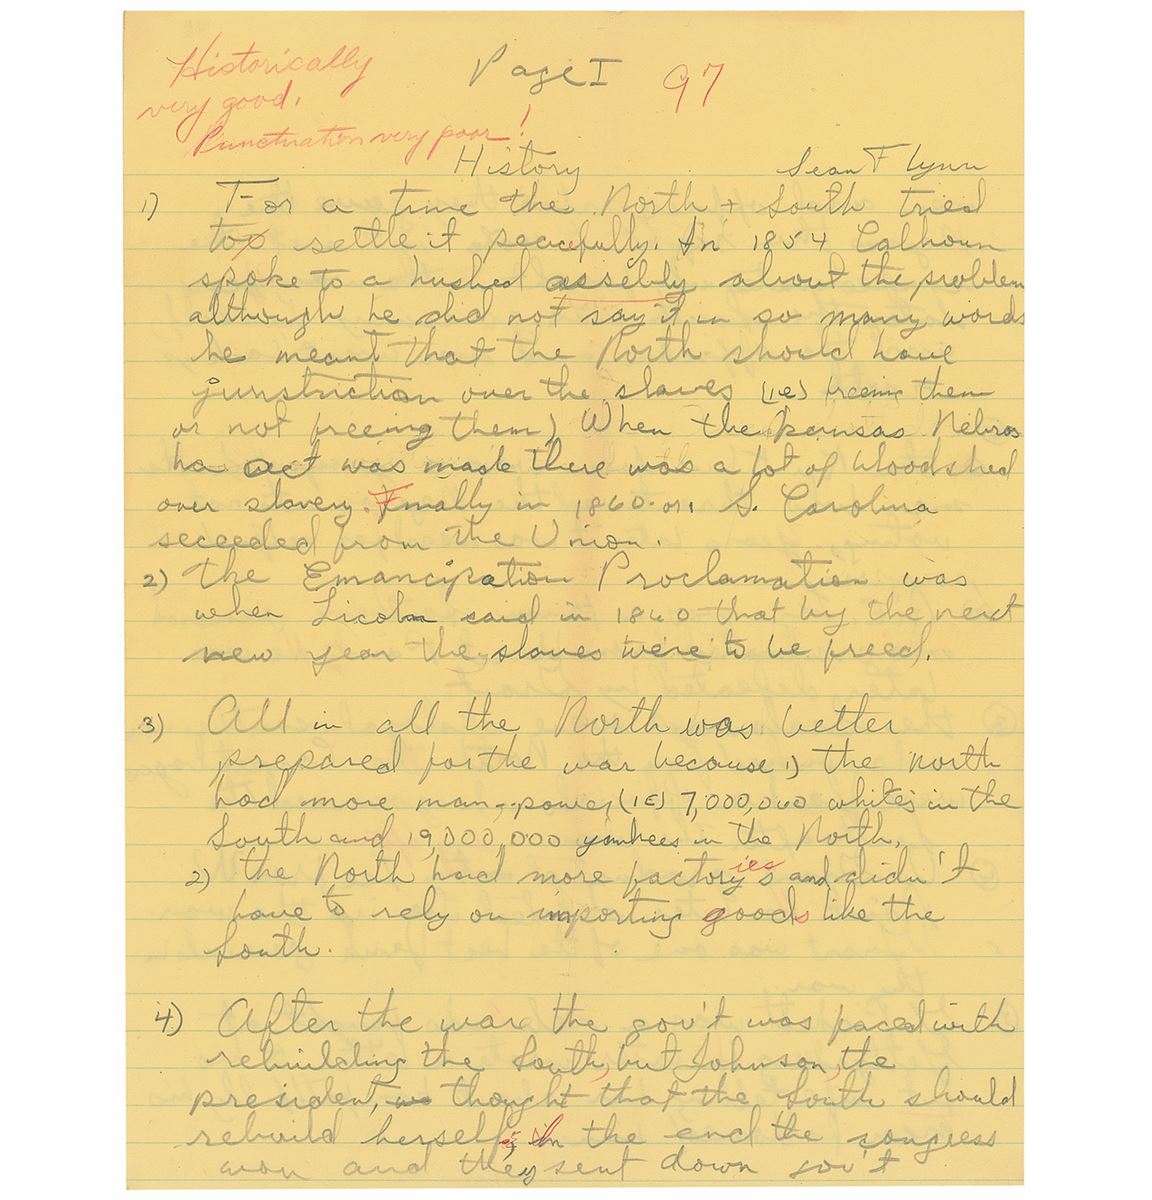 Historically
very good.
Punctuation very poor!
Page I
97
History
Sean Flynn
1) For a time the North + South tried
to settle it peacefully. In 1854 Calhoun
spoke to a hushed assebly about the problem
although he did not say it in so many words
he meant that the North should have
juristriction over the slaves (ie) freeing them
or not freeing them) When the Kansas Nebras
ka act was made there was a lot of bloodshed
over slavery. Finally in 1860 S. Carolina
seceeded from the Union.
2) the Emancipation Proclamation was
when Licoln said in 1860 that by the next
new year the slaves were to be freed.
3) All in all the North was better
prepared for the war because 1) the north
had more man-power (IE) 7,000,000 whites in the
South and 19,000,000 yankees in the North.
ies
2) the North had more factory's and didn't
have to rely on importing goods like the
South.
4) After the ware the gov't was faced with
rebuilding the South, but Johnson, the
president, thought that the South should
rebuild herself; in the end the congress
won and they sent down gov't